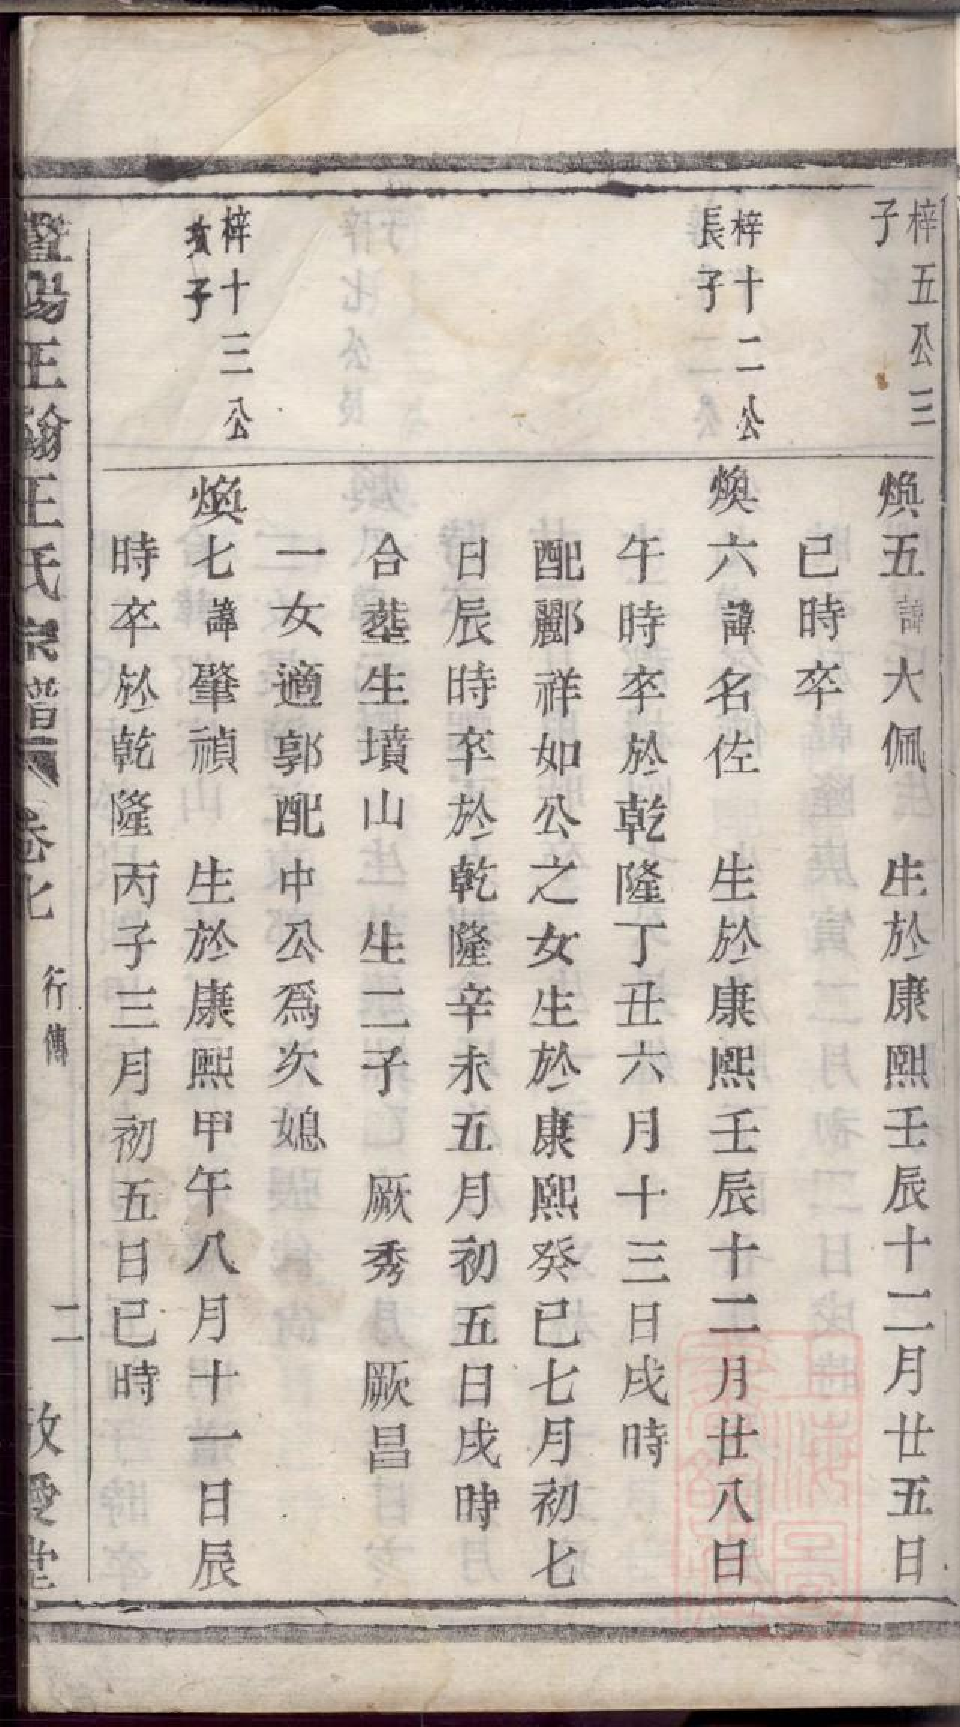 梓五公三
子
煥五諱大佩 生於康熙壬辰十二月廿五日
巳時卒
梓十二公
長子
煥六諱名佐 生於康熙壬辰十二月廿八日
午時卒於乾隆丁丑六月十三日戌時
配酈祥如公之女生於康熙癸巳七月初七
日辰時卒於乾隆辛未五月初五日戌時
合塟生墳山 生二子 厥秀 厥昌
一女適郭配中公爲次媳
梓十三公
子
煥七諱肇禎 生於康熙甲午八月十一日辰
時卒於乾隆丙子三月初五日巳時
暨陽王翰王氏宗譜 卷 行傳 二 敬愛堂